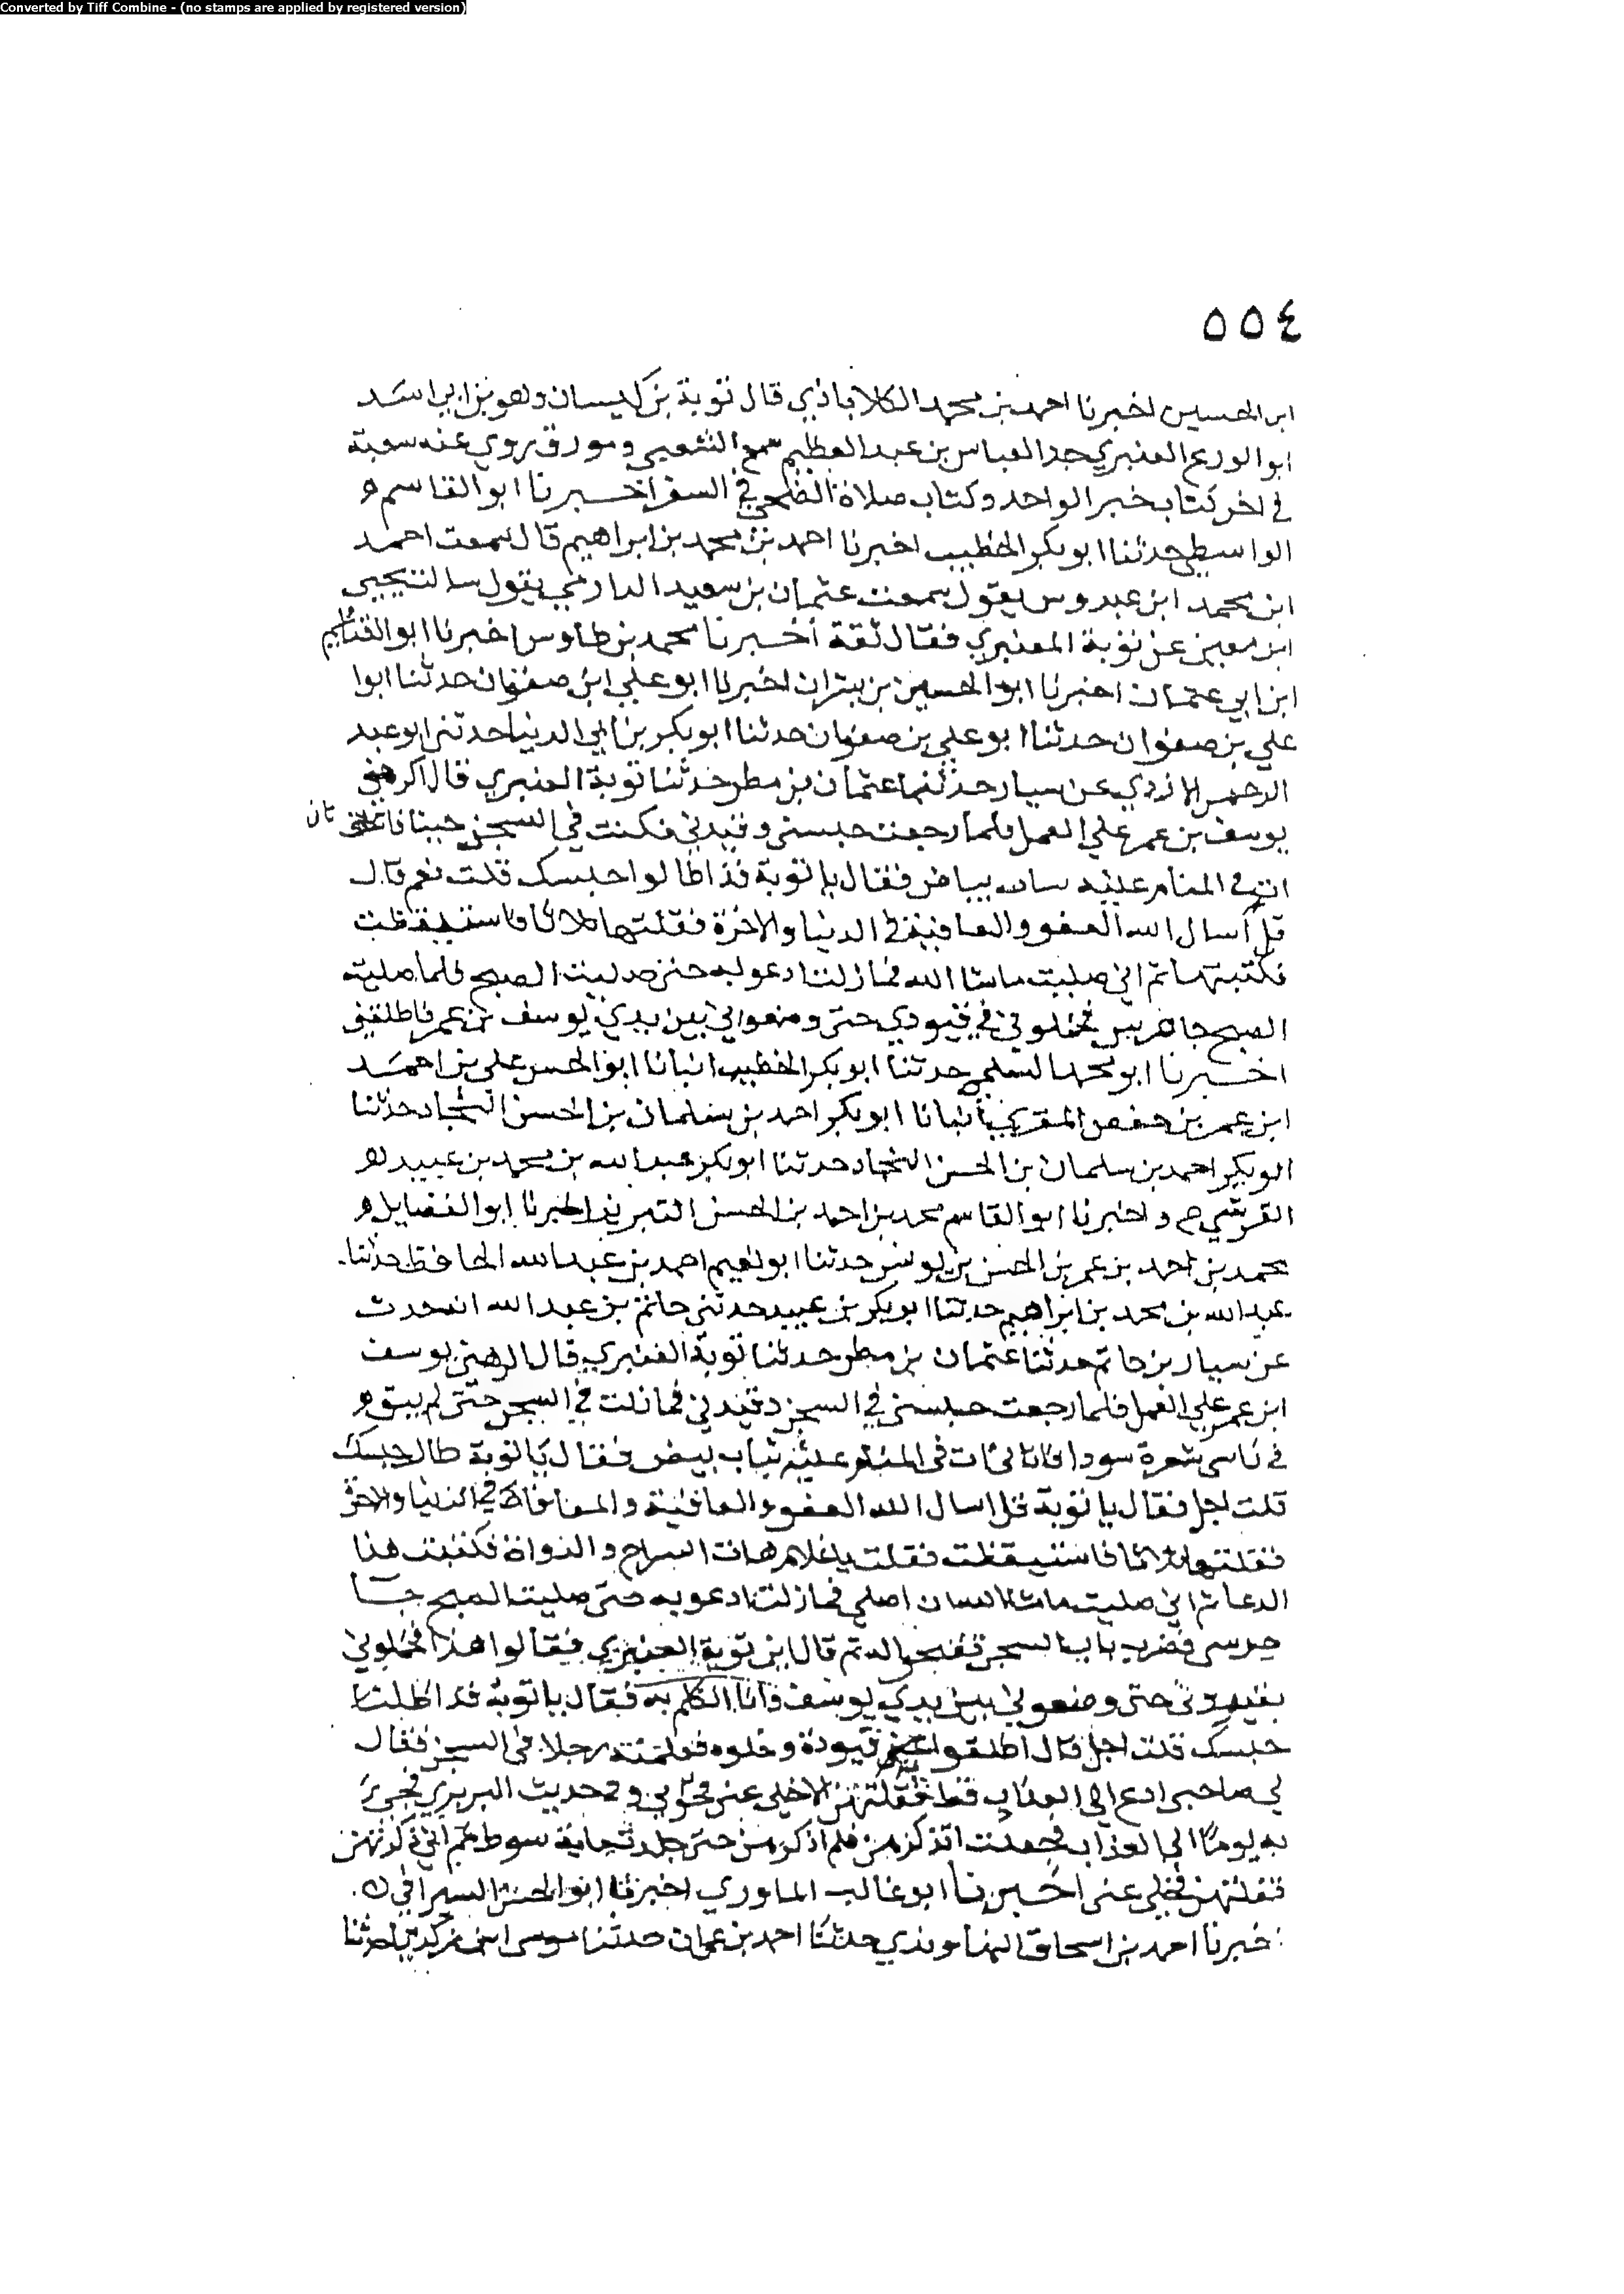 Converted by Tiff Combine - (no stamps are applied by registered version)
٥٥٤
ابن الحسين اخبرنا احمد بن محمد الكلاباذي قال توبة بن كيسان وهو بن ابي اسد
ابو الورع العنبري جد العباس بن عبد العظيم سمع الشعبي ومورق روي عنه سعبة
في اخر كتاب خبر الواحد وكتاب صلاة الضحى في السفر اخبرنا ابو القاسم
الواسطي حدثنا ابو بكر الخطيب اخبرنا احمد بن محمد بن ابراهيم قال سمعت احمد
ابن محمد ابن عبدوس يقول سمعت عثمان بن سعيد الدارمي يقول سالت يحيى
ابن معين عن توبة العنبري فقال ثقة اخبرنا محمد بن طاوس اخبرنا ابو القنايم
ابن ابي عثمان اخبرنا ابو الحسين بن بشران اخبرنا ابو علي ابن صفوان حدثنا ابوا
علي بن صفوان حدثنا ابو علي بن صفوان حدثنا ابو بكر بن ابي الدنيا حدثني ابو عبد
الرحمن الازدي عن سيار حدثنا عثمان بن مطر حدثنا توبة العنبري قال اكرهني
يوسف بن عمر علي العمل فلما رجعت حبسني وقيدني فكنت في السجن حينا
ات في المنام عليه بياض فقال يا توبة قد اطالوا حبسك قلت نعم قال
قل اسال الله العفو والعافية في الدنيا والاخرة فقلتها ثلاثا فاستيقظت
فكتبتها ثم اني صليت ماشا الله فما زلت ادعو به حتى صليت الصبح فلما صليت
الصبح جا حرس فحملوني في قيودي حتى وضعواني بين يدي يوسف بن عمر فاطلقني
اخبرنا ابو محمد السلمي حدثنا ابو بكر الخطيب انبانا ابو الحسن علي بن احمد
ابن عمر بن حفص المقري انبانا ابو بكر احمد بن سلمان بن الحسن النجاد حدثنا
ابو بكر احمد بن سلمان بن الحسن النجاد حدثنا ابو بكر عبد الله بن محمد بن عبيد
القرشي ح واخبرنا ابو القاسم محمد بن احمد بن الحسن اخبرنا ابو الفضايل
محمد بن احمد بن عمر بن الحسن بن يونس حدثنا ابو نعيم احمد بن عبد الله الحافظ حدثنا
عبد الله بن محمد بن ابراهيم حدثنا ابو بكر بن عبيد حدثني حاتم بن عبد الله انه حدث
عن سيار بن حاتم حدثنا عثمان بن مطر حدثنا توبة العنبري قال يوسف
ابن عمر علي العمل فلما رجعت حبسني في السجن وقيدني فما زلت في السجن حتى لم يبق
في راسي شعرة سودا فاتاني ات في المنام عليه ثياب بيض فقال يا توبة طال حبسك
قلت اجل فقال يا توبة قل اسال الله العفو والعافية والمعافاة في الدنيا والاخرة
فقلتها ثلاثا فاستيقظت فقلت يا غلام هات السراج والدواة فكتبت هذا
الدعا ثم اني صليت ماشا الله ان اصلي فما زلت ادعو به حتى صليت الصبح جا
حرسي فضرب باب السجن ففتحوا له ثم قال اين توبة العنبري فقالوا هذا فحملوني
بقيودي حتى وضعوني بين يدي يوسف وانا اتكلم به فقال يا توبة قد اطلنا
حبسك قلت اجل قال اطلقوا عنه قيوده وخلوه فعلمته رجلا في السجن فقال
لي صاحبي ادع الي العذاب قط فقلتهن الا خلي عني وفي حديث البربري فجيء
به يوما الى العذاب فجعلت اتذكرهن فلم اذكرهن حتى جلدت ماية سوط ثم اني ذكرتهن
فقلتهن فخلي عني اخبرنا ابو غالب الماوردي اخبرنا ابو الحسن السيرافي
اخبرنا احمد بن اسحاق النهاوندي حدثنا احمد بن عمران حدثنا موسى